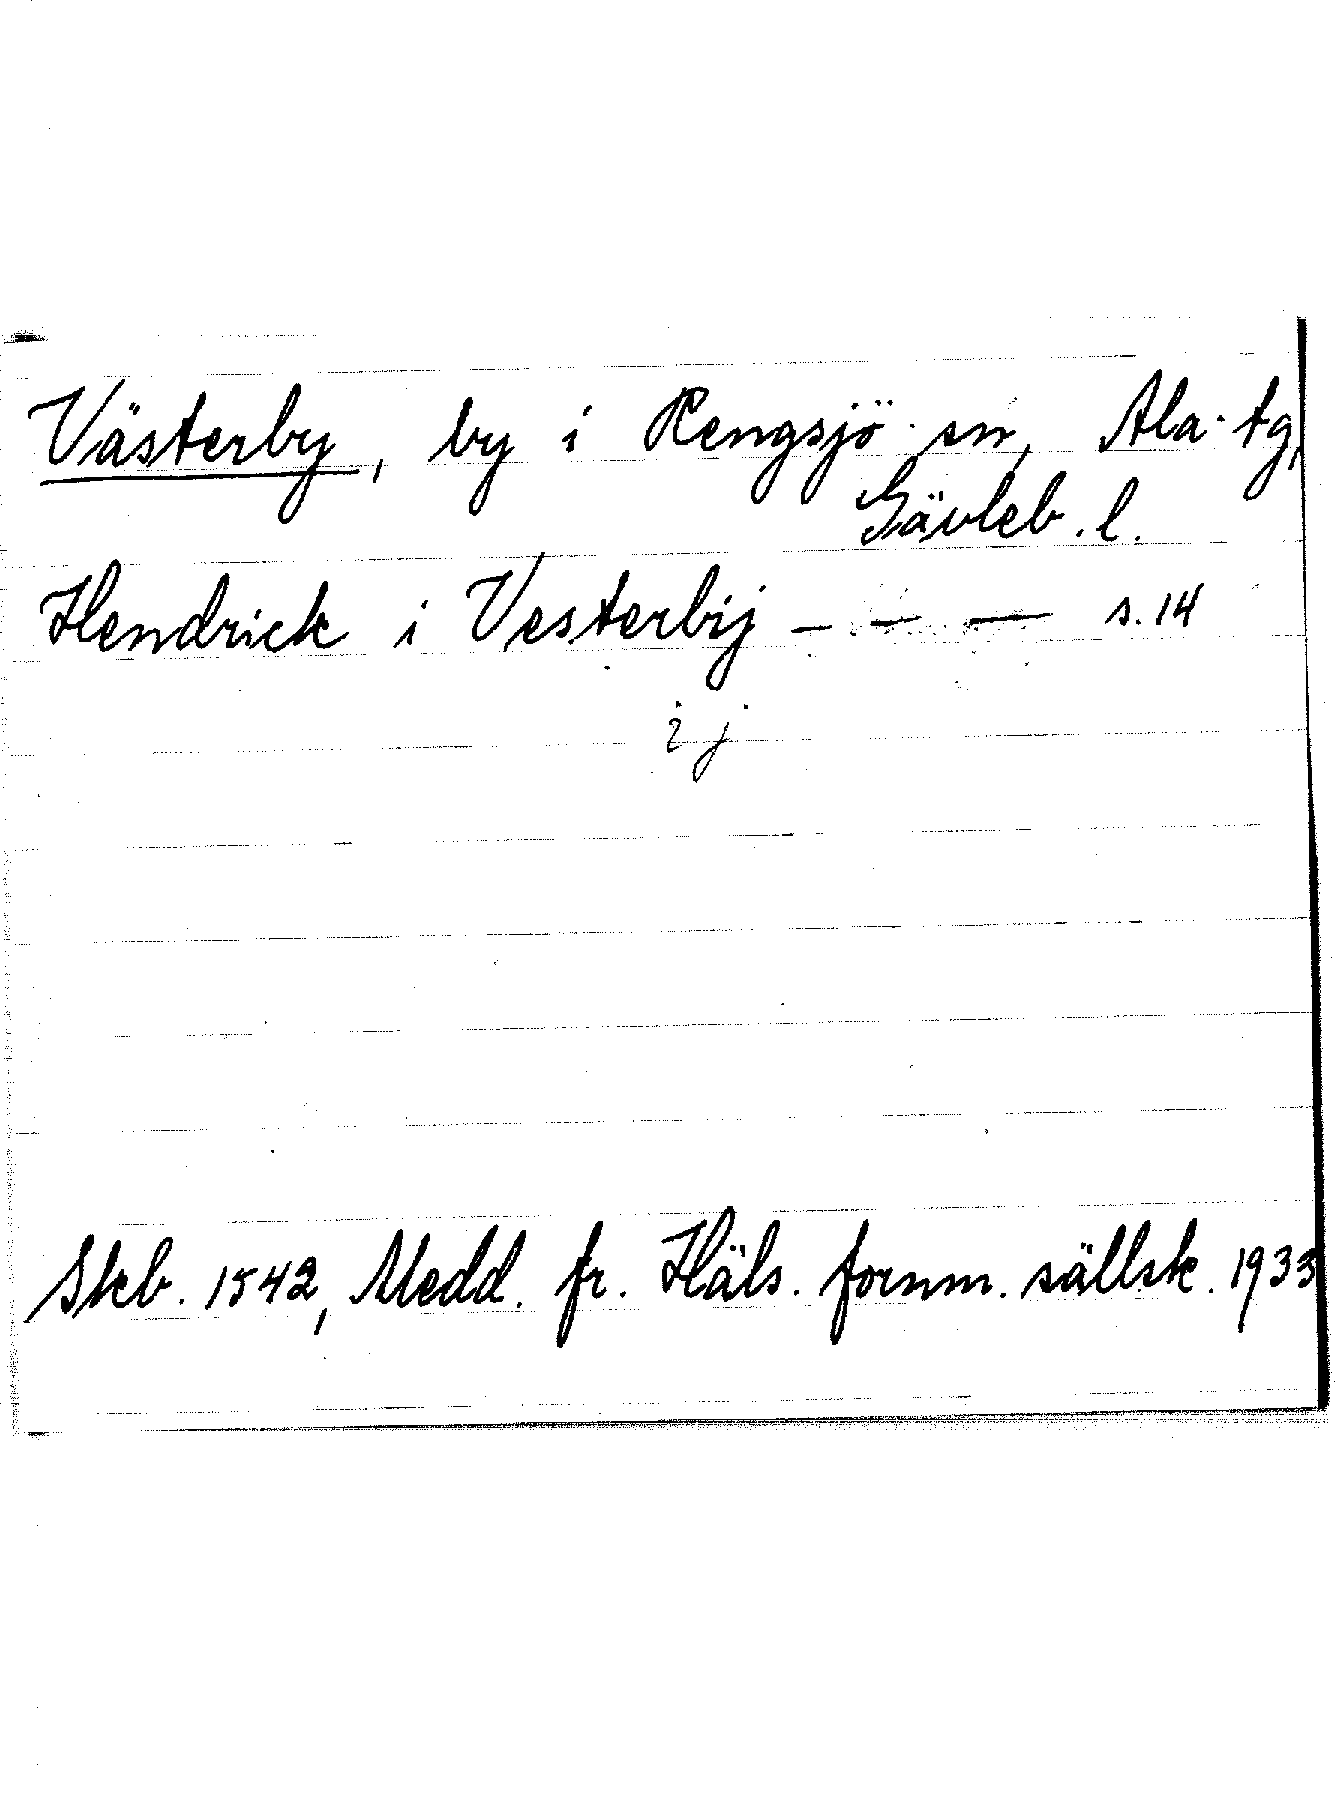 Västerby, by i Rengsjö sn, Ala tg,
Gävleb. l.
Hendrick i Vesterbij — — — s. 14
i j
Skb. 1542, Medd. fr. Häls. fornm. sällsk. 1933